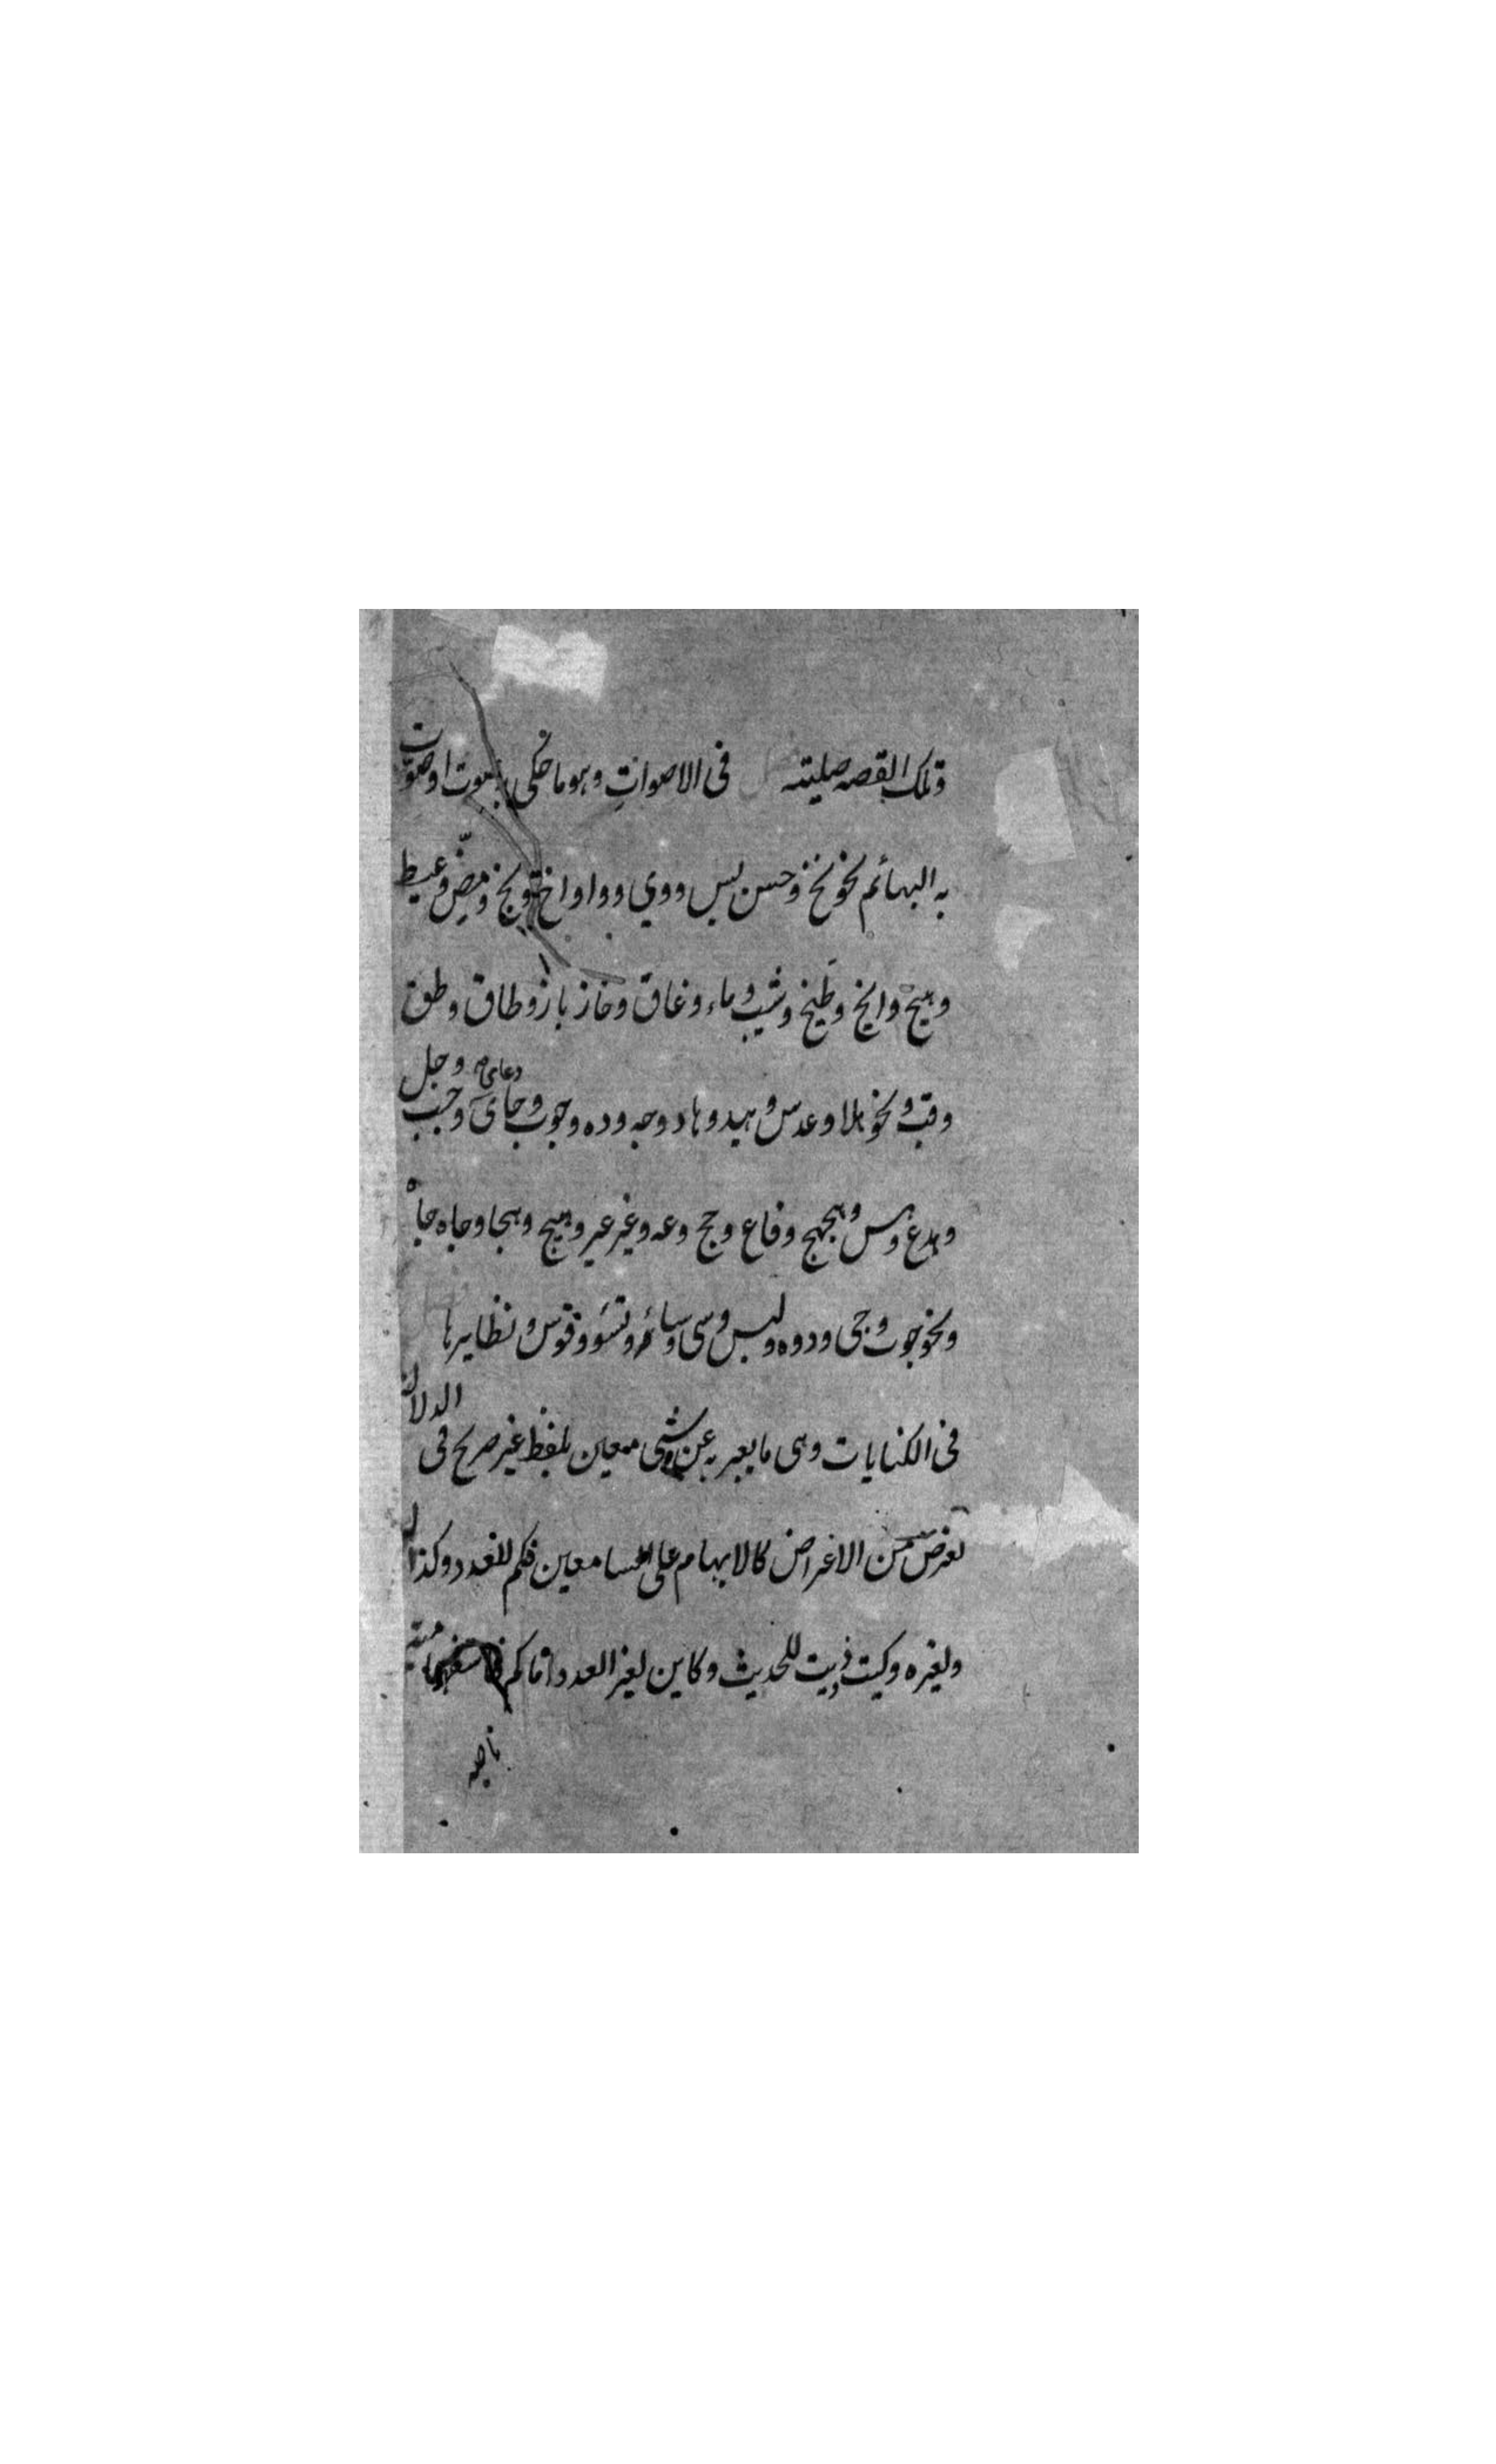 وتلك القصه صليته فى الاصوات وهو ما حكى به صوت او صوت
به البهائم نحو نخ وحسن بس ووي وواواخ وبخ ومض وعيط
وهيج وايخ وطيخ وشيب وماء وغاق وخاز باز وطاق وطق
وقب ونحو هلا وعدس وهيد وهاد وجه وده وجوب وجاى وحب
دعاى وحل
وهدع وهس وهجهج وفاع وحج وعه وغيز عيز وهيج وهجا وجاه جاه
ونحو جوت وجى ودوه وبس وسى وسا وتشؤ وقوس ونظايرها
فى الكنايات وهى ما يعبر به عن شى معين بلفظ غير صريح فى الدلالة
لغرض من الاغراض كالابهام على السامعين فكم للعدد وكذا له
ولغيره وكيت ذيت للحديث وكاين لغير العدد واما كم
ناصبه